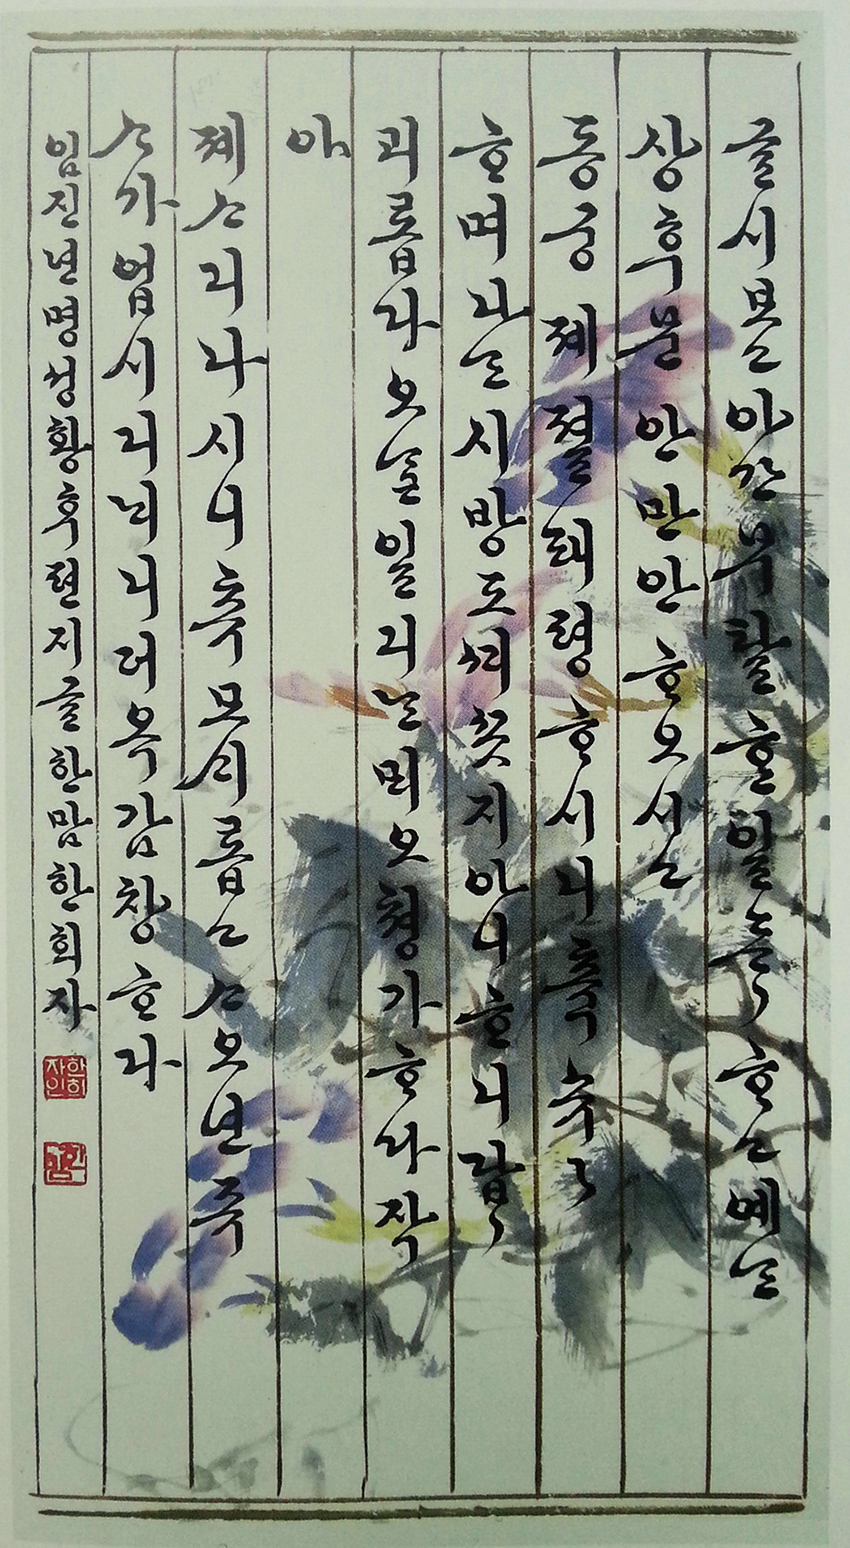 글시 보고 야간 무탈ᄒᆞᆫ 일 측〃ᄒᆞ고 예ᄂᆞᆫ
상후문안 만안ᄒᆞ오시고
동궁 제졀 태평ᄒᆞ시니 츅슈〃
ᄒᆞ며 나ᄂᆞᆫ 시방도 ᄭᆡᄭᅳᆺ지 아니ᄒᆞ니 답〃
괴롭다 오ᄂᆞᆯ 일긔ᄂᆞᆫ ᄆᆡ오 쳥가ᄒᆞ다 작
야
제ᄉᆞ 디나시니 츄모 ᄉᆡ롭고 ᄉᆞ오년 죽
ᄉᆞ가 업시 디ᄂᆡ니 더옥 감창ᄒᆞ다
임진년 명성황후 편지글 한맘 한희자
한희자인
한맘